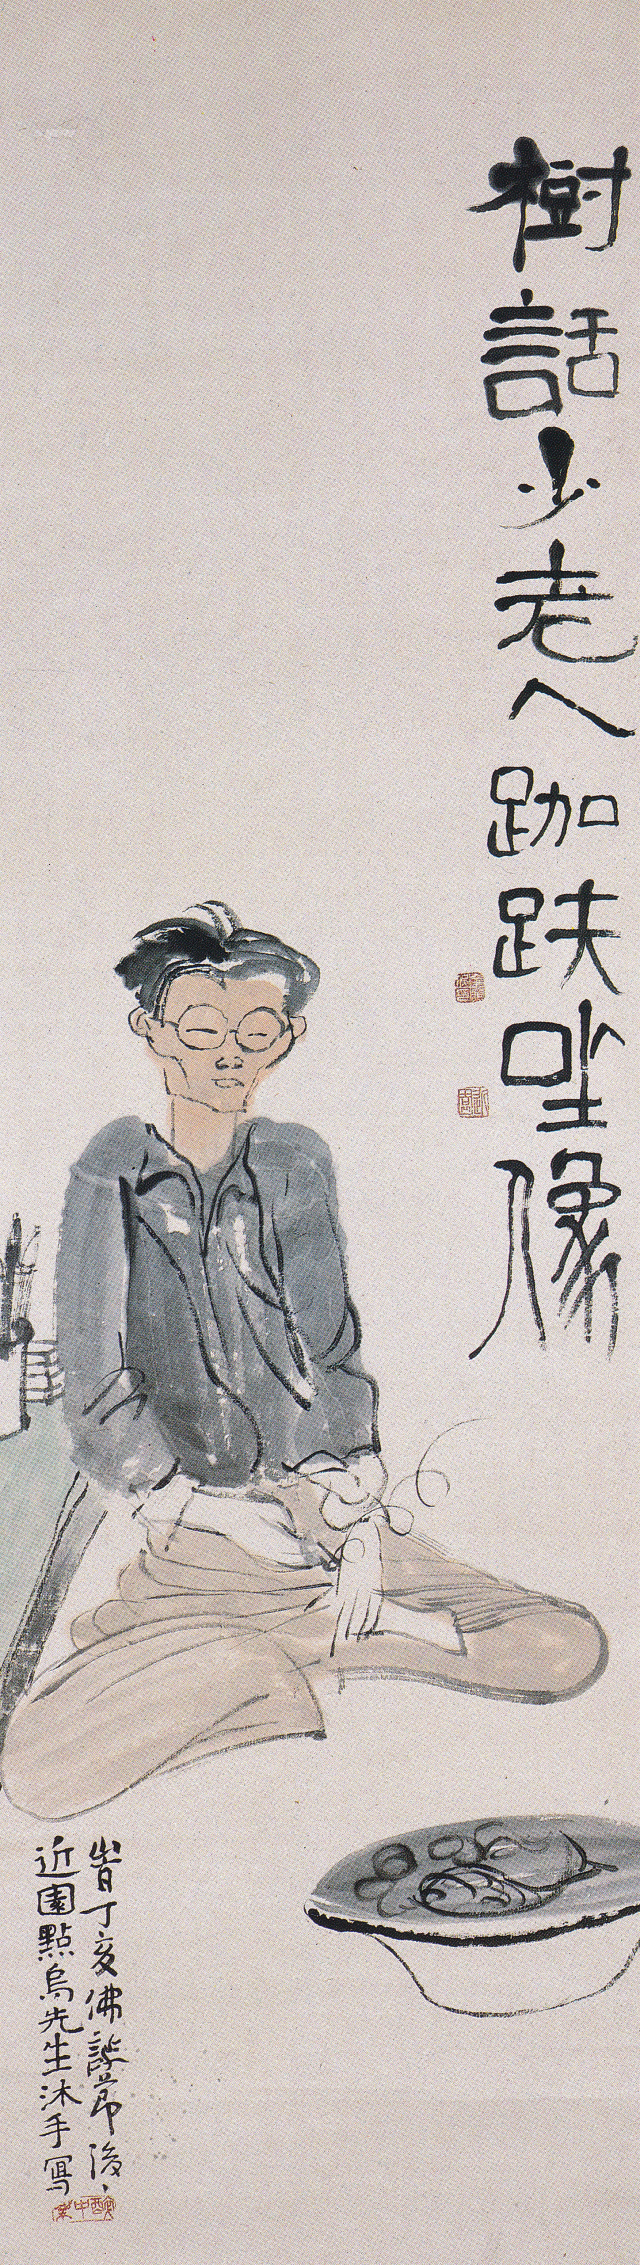 樹話少老人跏趺坐像
旹丁亥佛誕節後、
近園點烏先生沐手寫